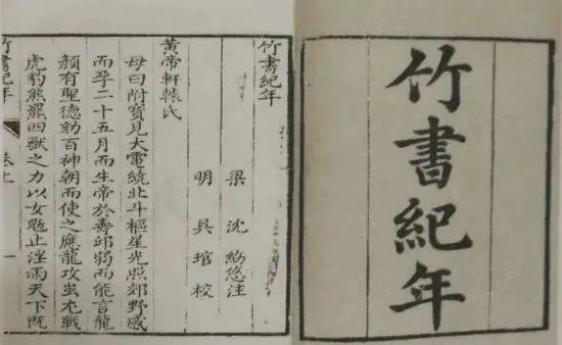 竹書紀年
竹書紀年
梁 沈 約 注
明 吳 琯 校
黃帝軒轅氏
母曰附寶見大電繞北斗樞星光照郊野感
而孕二十五月而生帝於壽邱弱而能言龍
顏有聖德劾百神朝而使之應龍攻蚩尤戰
虎豹熊羆四獸之力以女魃止淫雨天下既
竹書紀年 卷上 一